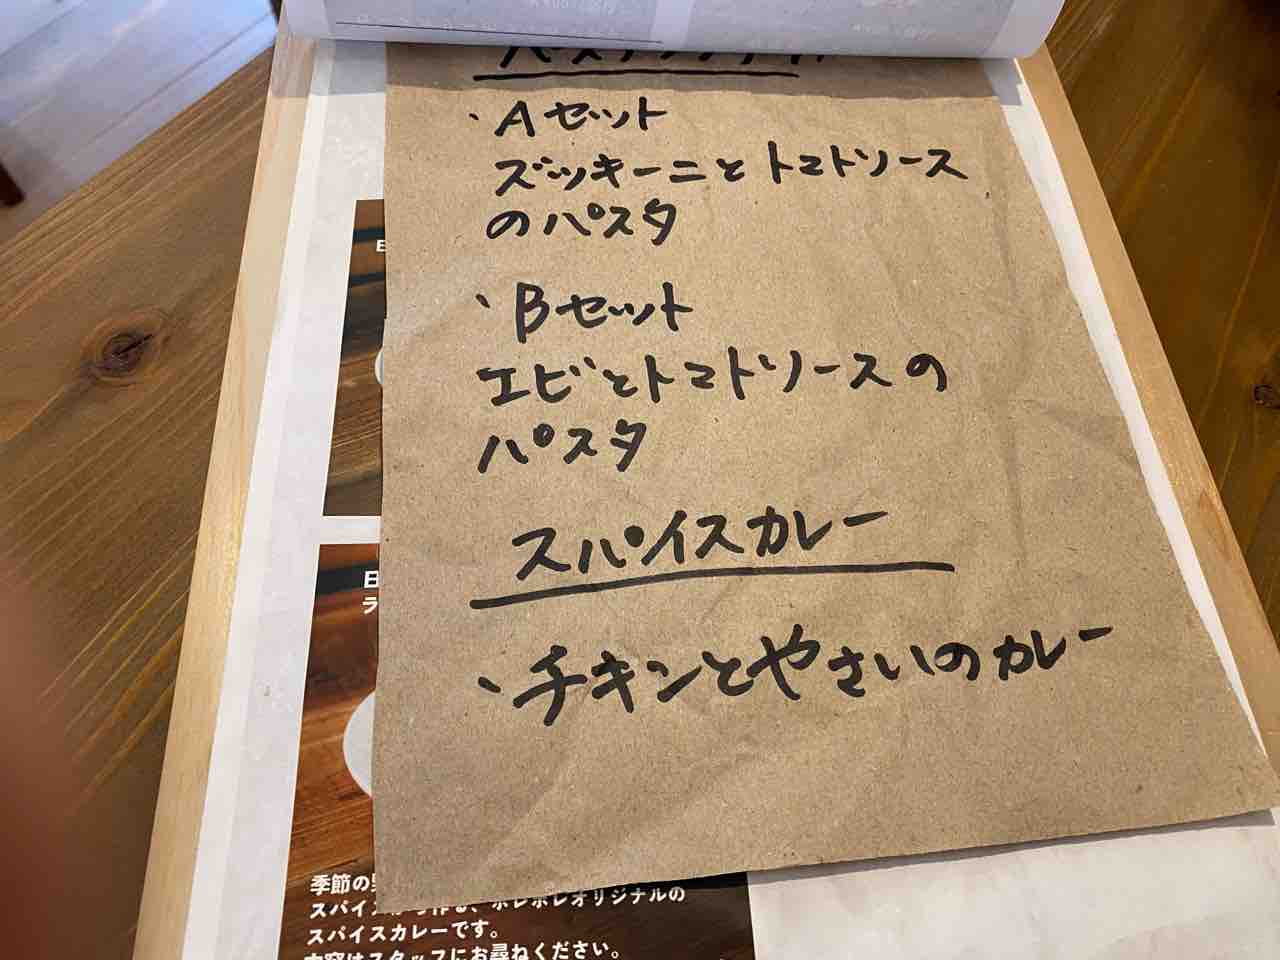 ・Aセット
ズッキーニとトマトソース
のパスタ
・Bセット
エビとトマトソースの
パスタ
スパイスカレー
・チキンとやさいのカレー
日
ラ
季節の
スパイ
ポレポレオリジナルの
スパイスカレーです。
内容はスタッフにお尋ねください。